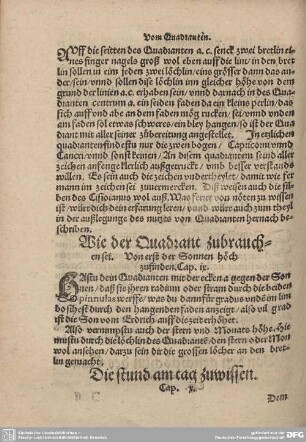 Vom Quadranten.
AVff die seitten des Quadanten a. c. senck zwei bretlin ei-
nes finger nagels groß wol eben auff die lini/ in den bret
lin sollen in ein jeden zwei löchlin/ eins grösser dann das an-
der/ sein/ vnnd sollen dise löchlin inn gleicher höhe von dem
grund der linien a.c. erhaben sein/ vnnd darnach in des Qua-
dranten centrum a. ein seiden faden da ein kleins perlin/ das
sich auff vnd abe an dem faden mög rucken/ sei/ vnnd vnden
am faden sol etwas schweres/ ein bley hangen/ so ist der Qua
drant mit aller seiner zubereitung angestellet. In etzlichen
quadranten findestu nur die zwen bogen/ Capricorni vnnd
Cancri/ vnnd sunst keinen/ An disem quadranten seind aller
zeichen anfenge klerlich außgetruckt/ vmb besser verstands
willen. Es sein auch die zeichen vndertheylet/ damit wie fer
mann im zeichen sei zuuermercken. Diß weisen auch die sil-
ben des Cisioianus wol auß. Was ferner von nöten zu wissen
ist/ würd dich dein erfarung leren/ vnnd würd auch zum theyl
in der außlegunge des nutzes von Quadranten hernach be-
schriben.
Wie der Quadrant zubrauch-
en sei. Von erst der Sonnen höch
zufinden. Cap. ix.
HAstu dein Quadranten mit der ecken a gegen der Son
nen/ daß sie jhren radium oder stram durch die beiden
spinnulas werffe/ was du dann für gradus vnds im lim
bo sihest durch den hangenden faden anzeigt/ also vil grad
ist die Son vom Erdrich auff die zeit erhöhet.
Also vernimpstu auch der stern vnd Monats höhe. Sie
mustu durch die löchlin des Quadrants/ den stern oder Mon
wol ansehen/ darzu sein dir die grossen löcher an den bret-
lin gemacht.
Die stund am tag zuwissen.
Cap. x.
Dem